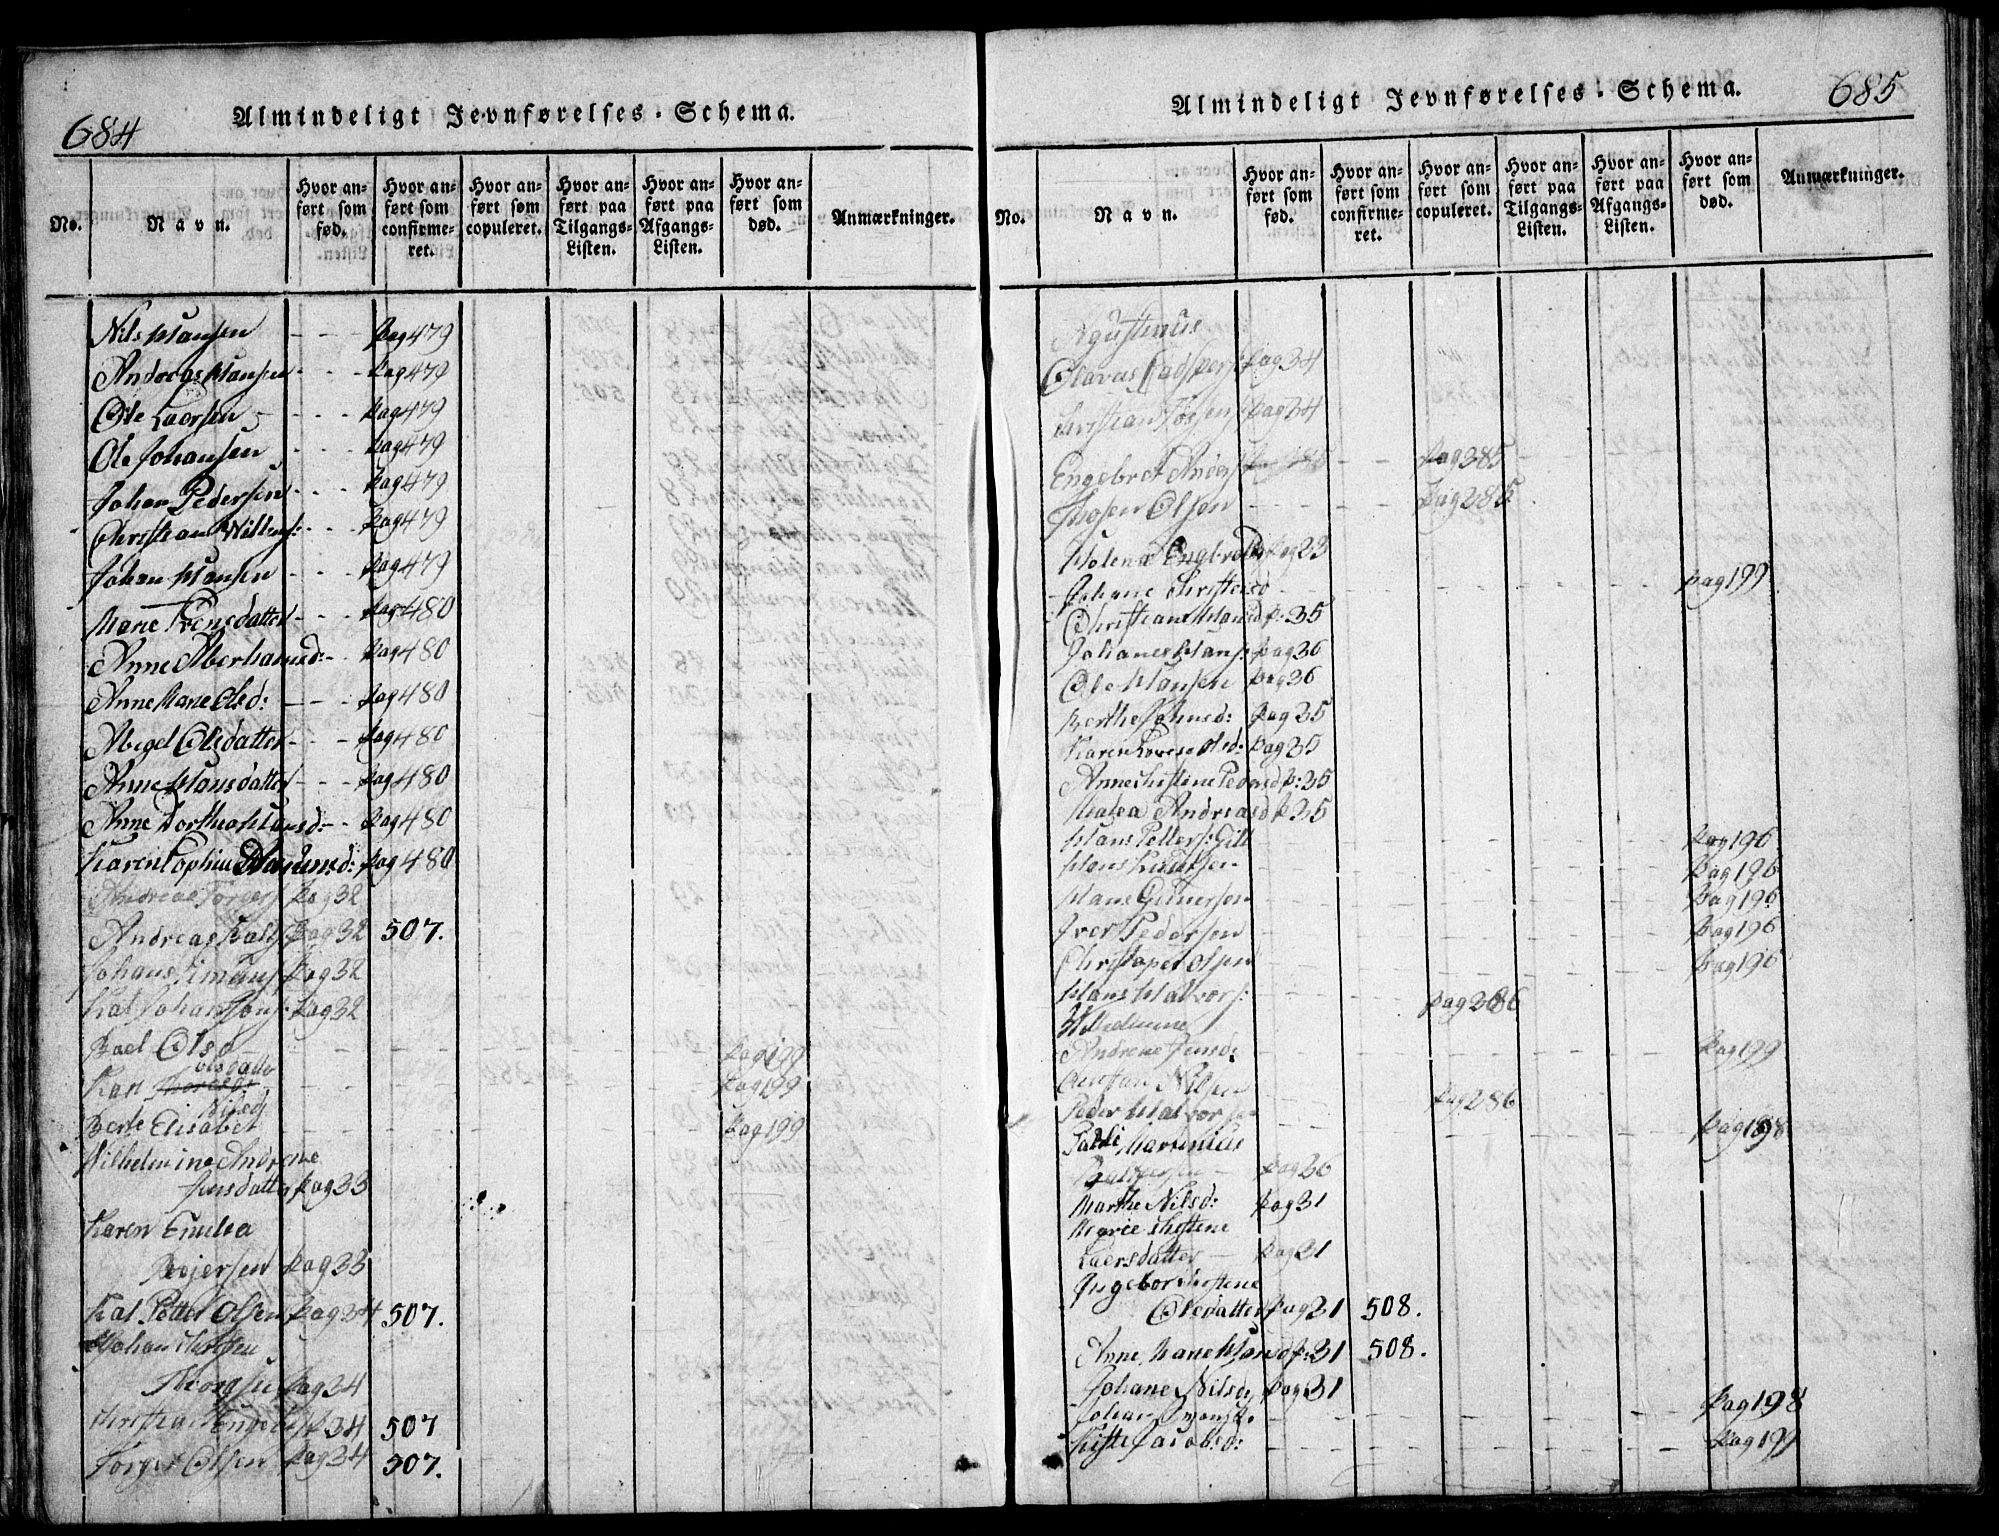 684
Almindeligt Jevnførelses-Schema.
No.
Navn.
Hvor anført som fød.
Hvor anført som confirmeret.
Hvor anført som copuleret.
Hvor anført paa Tilgangs-Listen.
Hvor anført paa Afgangs-Listen.
Hvor anført som død.
Anmærkninger.
Nils Hansen - - - Pag 479
Andreas Hansen - - - Pag 479
Ole Laersen - - - Pag 479
Ole Johansen - - - Pag 479
Johan Pedersen - - - Pag 479
Christian Willums: - - Pag 479
Johan Hansen - - - Pag 479
Marie Svensdatter - - Pag 480
Anne Aberhamsd: - Pag 480
Anne Marie Olsd: - - - Pag 480
Abigel Olsdatter - - - Pag 480
Anne Hansdatter - - - Pag 480
Anne Dorthea Hansd: - - Pag 480
Karen Sophie Pag 480
Andreas Torgers Pag 32
Andreas Pag 32 507.
Johans Simens Pag 32
Kal Johan Pag 32
Boel Olsd Pag 199
Olsdatter
Kari Pag 199
Nilsd
Berte Elisabet Pag 199
Wilhelmine Andrene
Jensdatter Pag 33
Karen Emilea
Rejersen Pag 33
Kal Petter Olsen Pag 34 507.
Johan
Pag 34
P 34 507
Torger Olsen Pag 34 507.
685
Almindeligt Jevnførelses-Schema.
No.
Navn.
Hvor anført som fød.
Hvor anført som confirmeret.
Hvor anført som copuleret.
Hvor anført paa Tilgangs-Listen.
Hvor anført paa Afgangs-Listen.
Hvor anført som død.
Anmærkninger.
Agustinus
Olavus Pag 34
Christian Pag 34
Engebret Anders Pag 385
Olsen Pag 285
Helene Pag 23
Johane Christensd Pag 199
Christiane Hansd p: 35
Johanes Hans: Pag 36
Ole Hansen Pag 36
Berthe Johnsd: Pag 35
Karen Lovise Olsd: Pag 35
Anne Cristine Pedersd p: 35
Malea Andreasd P 35
Hans Petters: Gill Pag 196
Hans Pag 196
Hans Gunersen Pag 196
Iver Pedersen Pag 196
Christopher Olsen Pag 196
Hans Halvors: Pag 286
Wilhelmine
Andrene Jensd: Pag 199
Christian Nilsen
Peder Halvorsen Pag 286
Martinius Pag 198
Pag 36
Marthe Nilsd: Pag 31
Marie Cristine
Laersdatter - Pag 31
Ingebor Cristine
Olsdatter Pag 31 508.
Anne Marie Hansd p: 31 508.
Johane Nilsd Pag 31
Johan Pag 198
Jacobsd: Pag 199